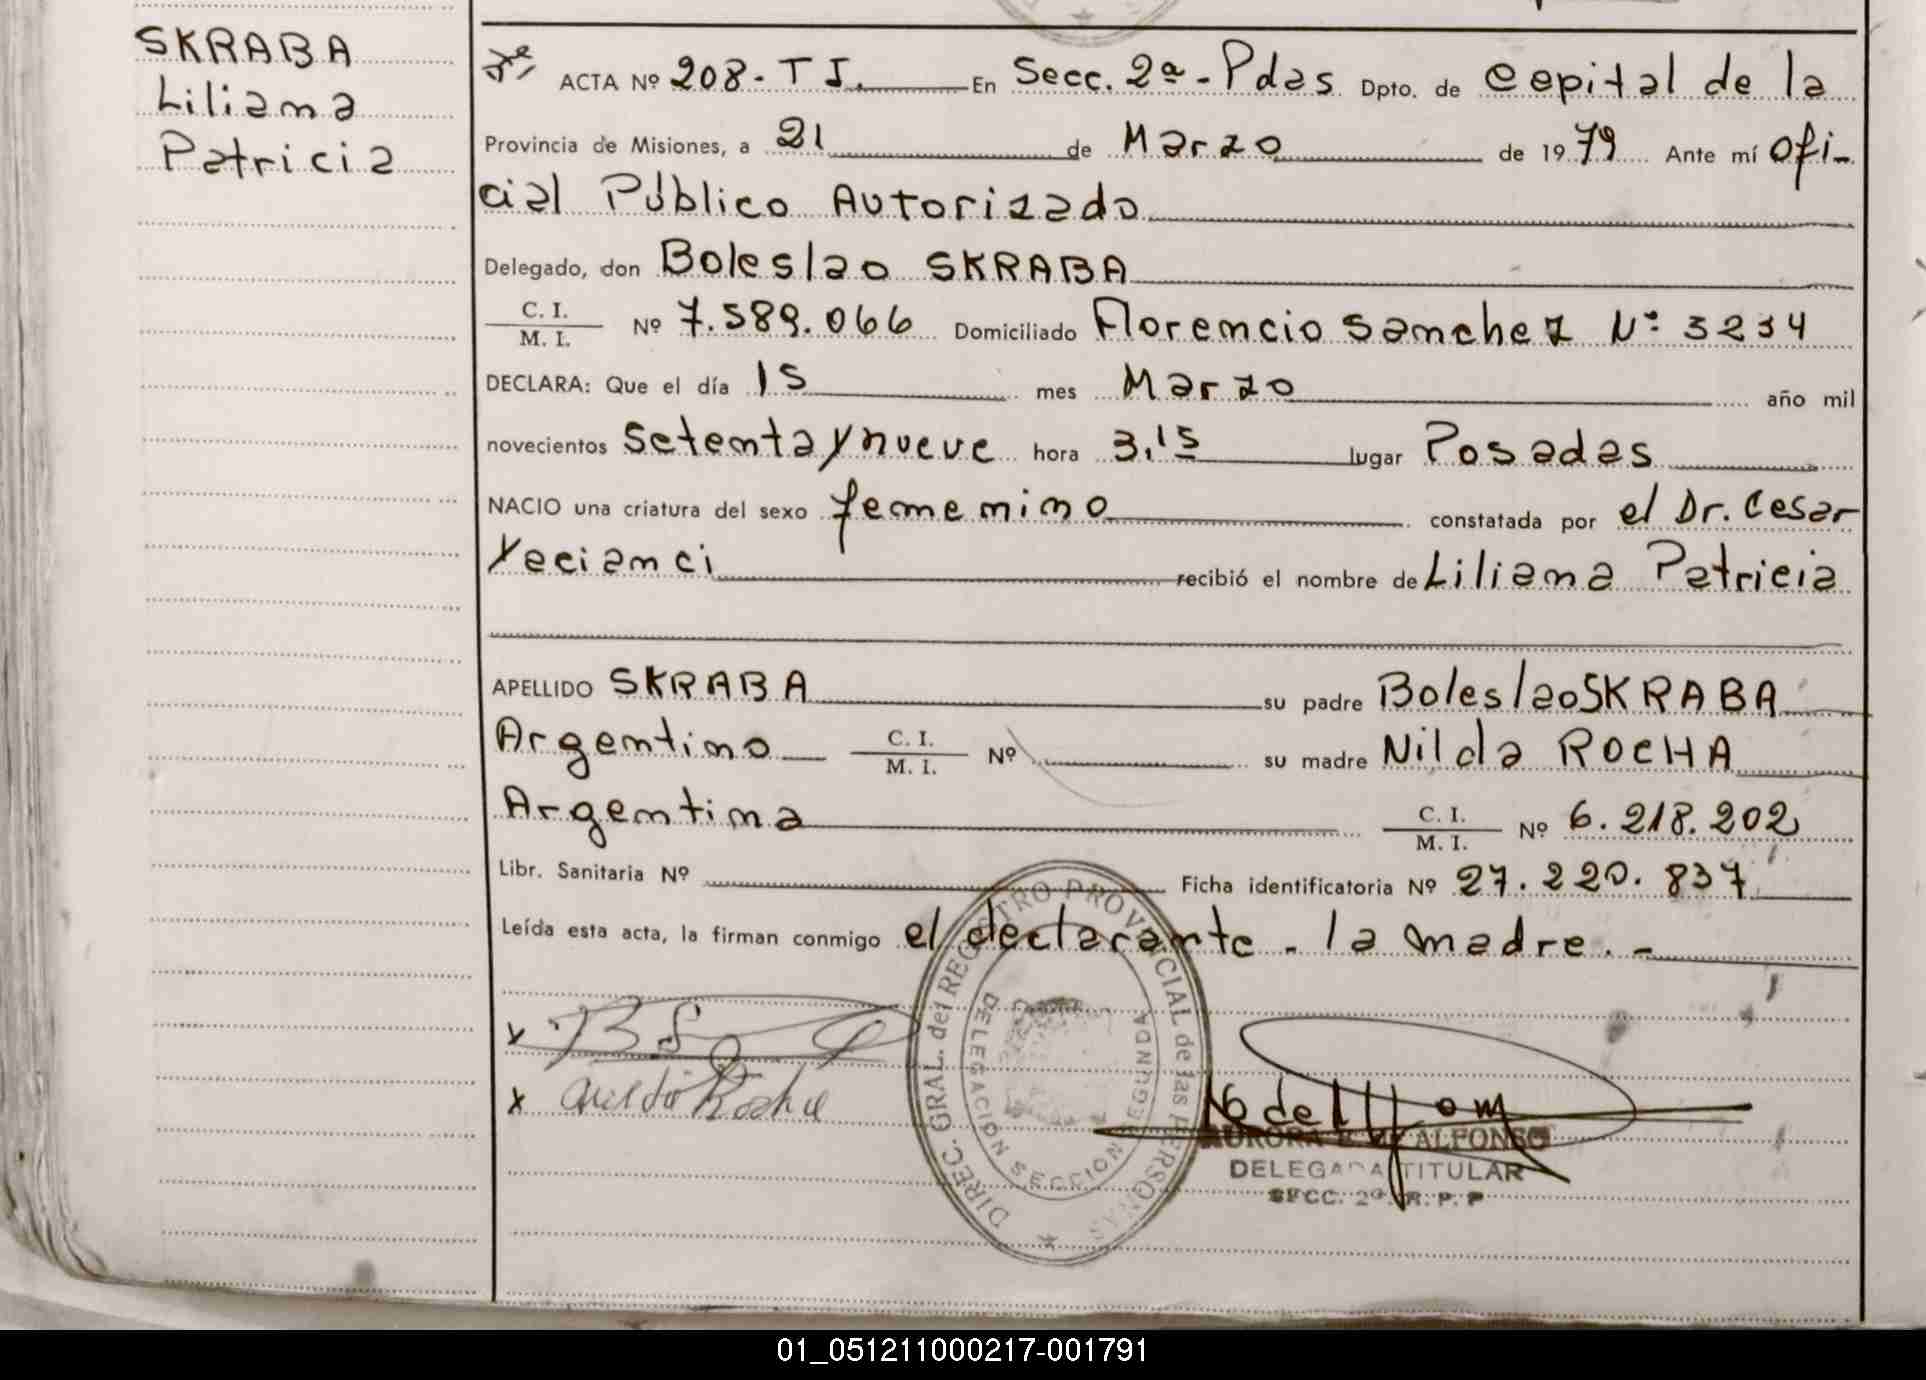 SKRABA
Liliana
Patricia
ACTA Nº 208 - T I. En Secc. 2ª - Pdas Dpto. de Capital de la
Provincia de Misiones, a 21 de Marzo de 1979 Ante mí Ofi-
cial Público Autorizado
Delegado, don Boleslao SKRABA
C. I. / M. I. Nº 7.589.066 Domiciliado Florencio Sanchez Nº 3234
DECLARA: Que el día 15 mes Marzo año mil
novecientos setenta y nueve hora 3,15 lugar Posadas
NACIO una criatura del sexo femenino constatada por el Dr. Cesar
Yacianci recibió el nombre de Liliana Patricia
APELLIDO SKRABA su padre Boleslao SKRABA
Argentino C. I. / M. I. Nº su madre Nilda ROCHA
Argentina C. I. / M. I. Nº 6.218.202
Libr. Sanitaria Nº Ficha identificatoria Nº 27.220.837
Leída esta acta, la firman conmigo el declarante - la madre. -
DIREC. GRAL. del REGISTRO PROVINCIAL de las PERSONAS
DELEGACIÓN SECCION SEGUNDA
AURORA DE ALFONSO
DELEGADA TITULAR
SECC. 2ª R. P. P
01_051211000217-001791